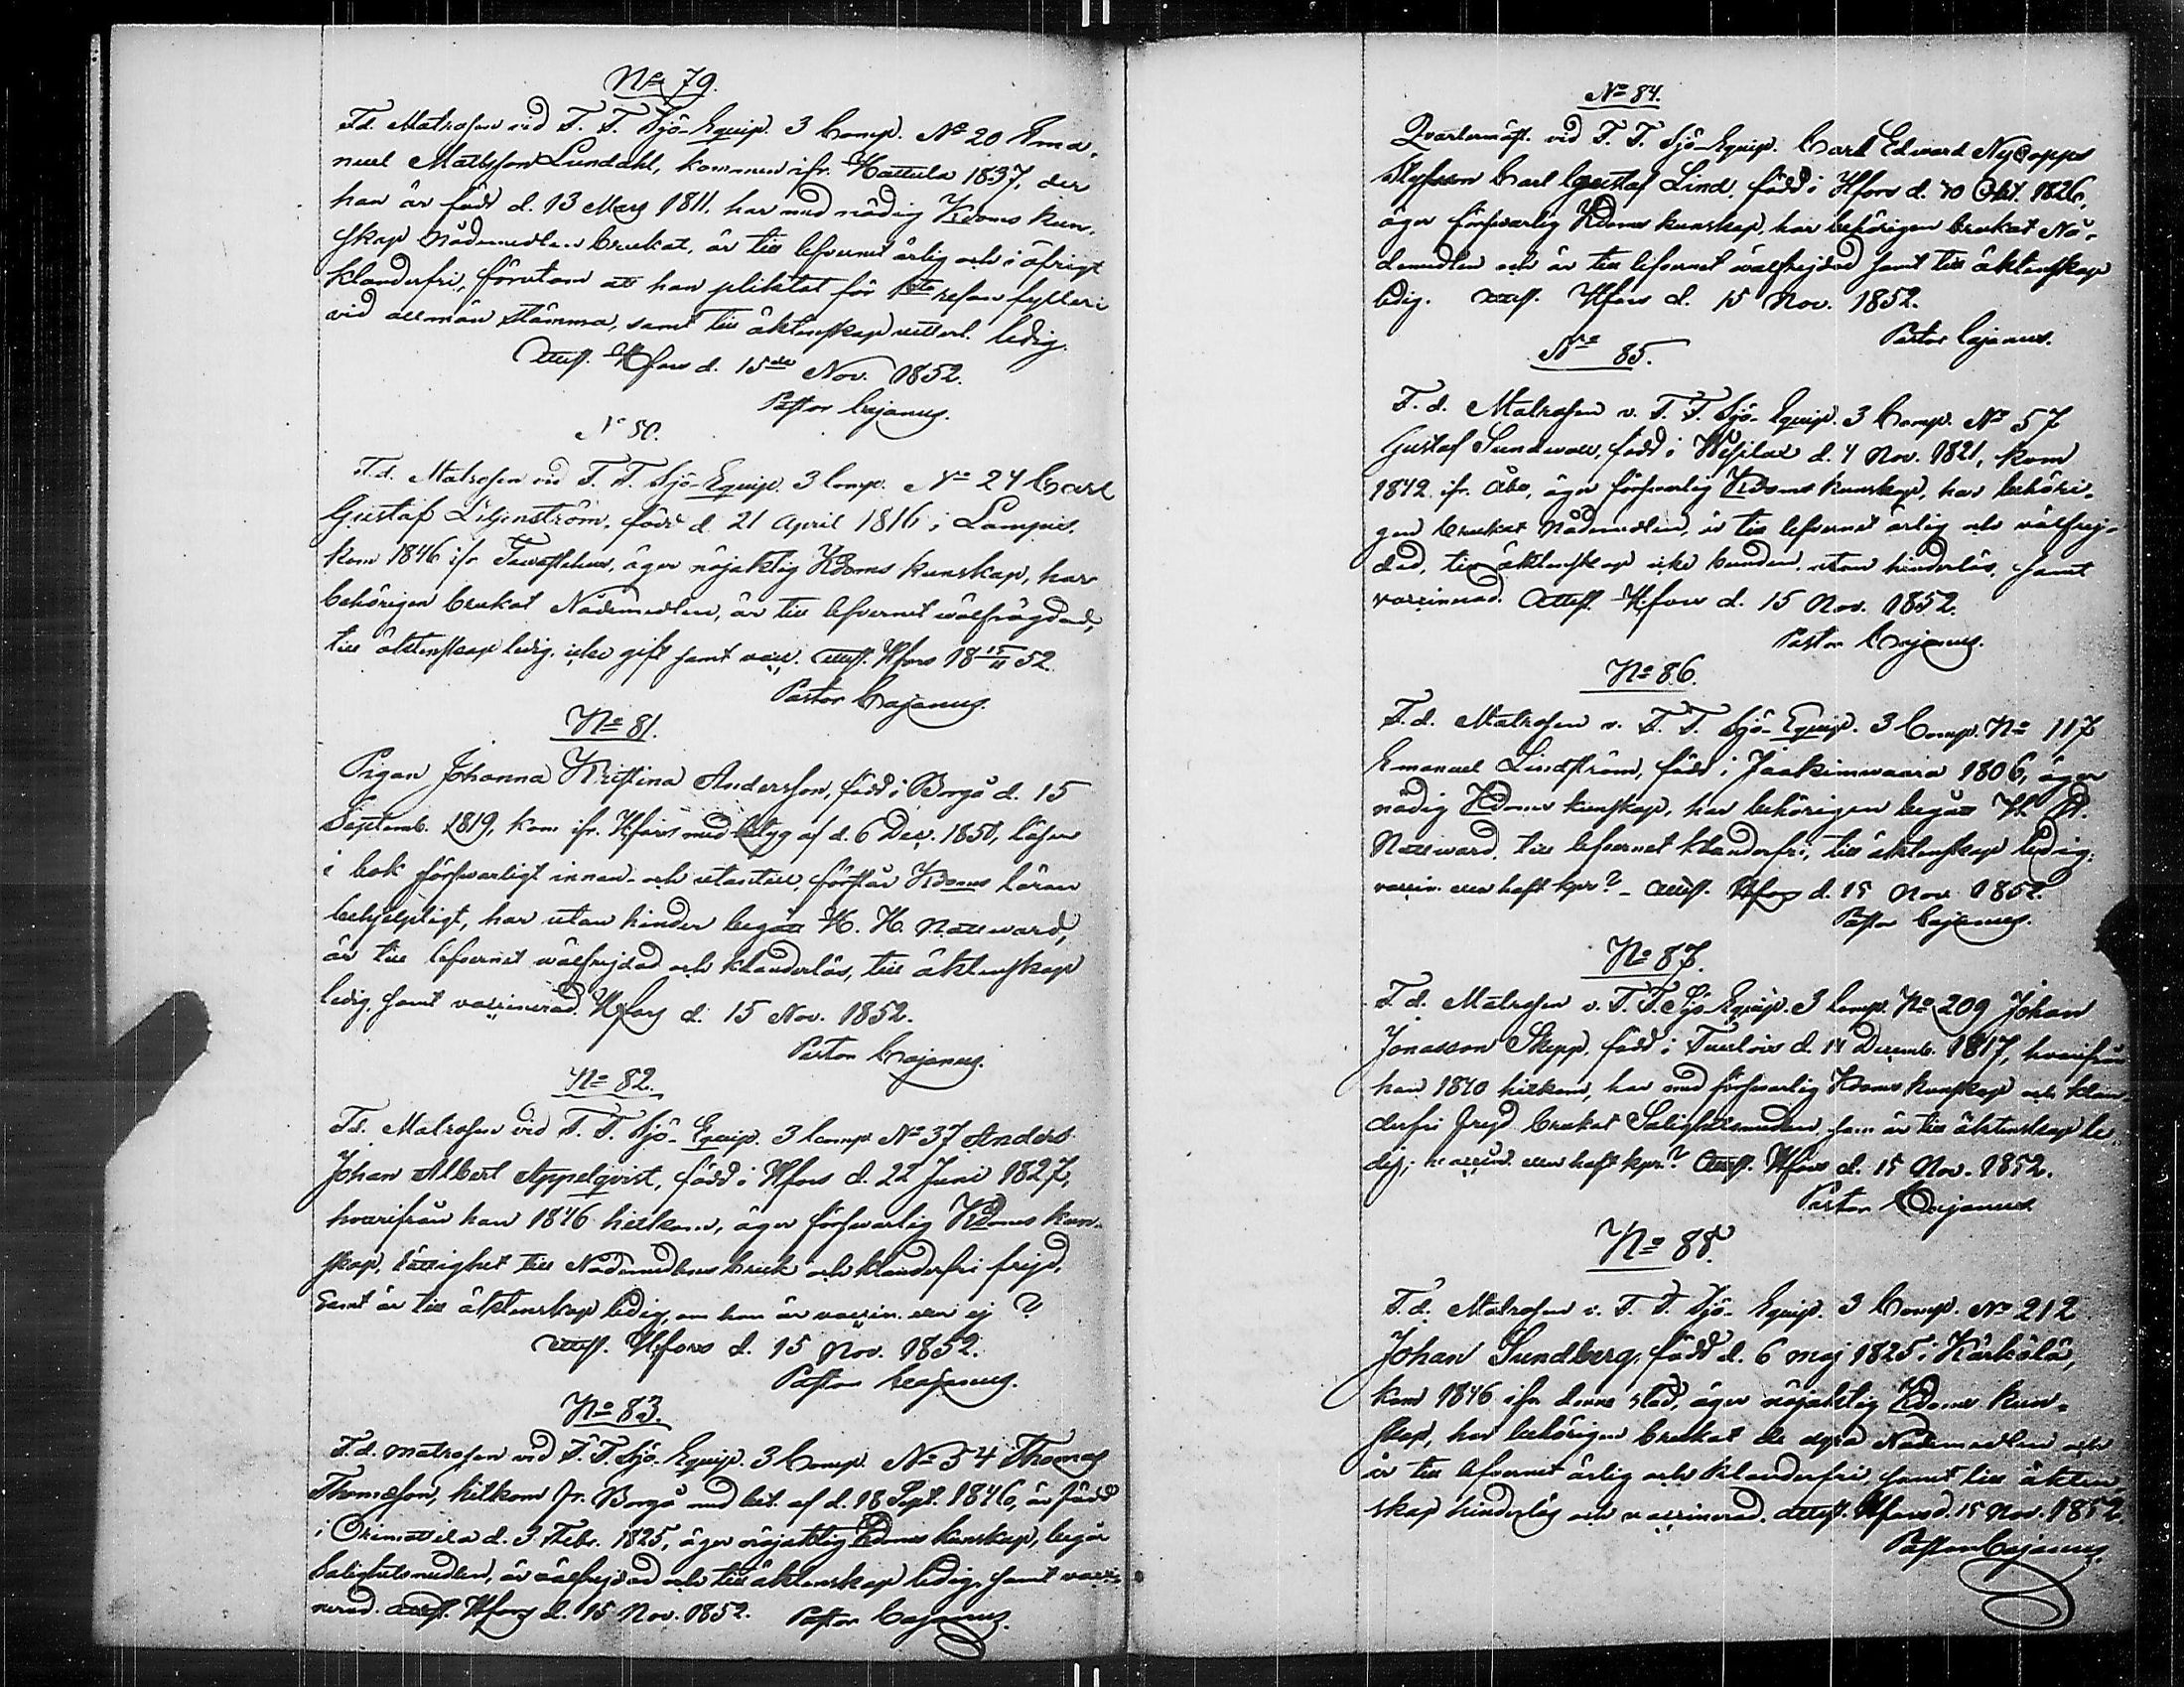 No 79.
F.d. Matrosen vid F. F. Sjö-Equip. 3 Comp. No 20 Ema-
nuel Mattsson Lundahl, kommen ifr. Hattula 1837, der
han är född d. 13 Mars 1811, har med nödig Xdoms kun-
skap Nådemedlen brukat, är till lefvernet ärlig och i öfrigt
klanderfri, förutom att han pliktat för 1sta resan fylleri
vid allmän stämma, samt till äktenskap ledig.
Attest. Hfors d. 15de Nov. 1852.
Pastor Cajanus.
N 80.
F.d. Matrosen vid F. F. Sjö-Equip. 3 Comp. No 24 Carl
Gustaf Liljenström, född d. 21 April 1816 i Lampis,
kom 1846 ifr Tavastehus, äger nöjaktig Xdoms kunskap, har
behörigen brukat Nådemedlen, är till lefvernet wälfrägdad,
till äktenskap ledig, icke gift samt vacc. Attest. Hfors 18 15/11 52.
Pastor Cajanus.
No 81.
Pigan Johanna Kristina Andersson, född i Borgå d. 15
Septemb. 1819, kom ifr. Hfors med betyg af d. 6 Dec. 1850, läser
i bok försvarligt innan- och utantill, förstår Xdoms läran
behjelpligt, har utan hinder begått H. H. Nattward,
är till lefvernet wälfrejdad och klanderlös, till äktenskap
ledig, samt vaccinerad. Hfors d. 15 Nov. 1852.
Pastor Cajanus.
No 82.
F.d. Matrosen vid F. F. Sjö-Equip. 3 Comp. No 37 Anders
Johan Albert Appelqvist, född i Hfors d. 22 Juni 1827,
hvarifrån han 1846 hitkom, äger försvarlig Xdoms kun-
skap, rättighet till Nådemedlens bruk och klanderfri frejd,
Samt är till äktenskap ledig, om han är vaccin. eller ej ?
Attest. Hfors d. 15 Nov. 1852.
Pastor Cajanus.
No 83.
F.d. matrosen vid F. F. Sjö-Equip. 3 Comp. No 54 Thomas
Thomasson, hitkom fr. Borgå med bet. af d. 18 Sept. 1846, är född
i Orimattila d. 3 Febr. 1825, äger nöjaktig Xdoms kunskap, begår
Salighetsmedlen, är wälfrejdad och till äktenskap ledig, samt vacci-
nerad. Attest. Hfors d. 15 Nov. 1852. Pastor Cajanus.
No 84.
Qvartermäst. vid F. F. Sjö-Equip. Carl Edward Nycopps
Styfson Carl Gustaf Lind, född i Hfors d. 10 Okt. 1826,
äger försvarlig Xdoms kunskap, har behörigen brukat Nå-
demedlen och är till lefvernet wälfrejdad samt till äktenskap
ledig. Attest. Hfors d. 15 Nov. 1852.
Pastor Cajanus.
No 85.
F.d. Matrosen v. F. F. Sjö-Equip. 3 Comp. No 57
Gustaf Sundwall, född i Wesilax d. 4 Nov. 1821, kom
1842 ifr. Åbo, äger försvarlig Xdoms kunskap, har behöri-
gen brukat Nådemedlen, är till lefvernet ärlig och välfrej-
dad, till äktenskap icke bunden, utan hinderlös, samt
vaccinerad. Attest. Hfors d. 15 Nov. 1852.
Pastor Cajanus.
No 86.
F.d. Matrosen v. F. F. Sjö-Equip. 3 Comp. No 117
Emanuel Lindström, född i Jaakimwaara 1806, äger
nödig Xdoms kunskap, har behörigen begått H. H.
Nattward, till lefvernet klanderfri, till äktenskap ledig;
vaccin. eller haft kpr.? - Attest. Hfors d. 15 Nov. 1852.
Pastor Cajanus.
No 87.
F.d. Matrosen v. F. F. Sjö-Equip. 3 Comp. No 209 Johan
Jonasson Skepp, född i Tuulois d. 14 Decemb. 1817, hvarifrån
han 1840 hitkom, har med försvarlig Xdoms kunskap och klan-
derfri frejd brukat Salighetsmedlen, samt är till äktenskap le-
dig; vaccin. eller haft kpr.? Attest. Hfors d. 15 Nov. 1852.
Pastor Cajanus.
No 88.
F.d. Matrosen v. F. F. Sjö-Equip. 3 Comp. No 212
Johan Sundberg, född d. 6 maj 1825 i Kärkölä,
kom 1846 ifr. denna stad, äger nöjaktig Xdoms kun-
skap, har behörigen brukat de dyra Nådemedlen och
är till lefvernet ärlig och klanderfri samt till äkten-
skap hinderlös och vaccinerad. Attest. Hfors d. 15 Nov. 1852.
Pastor Cajanus.